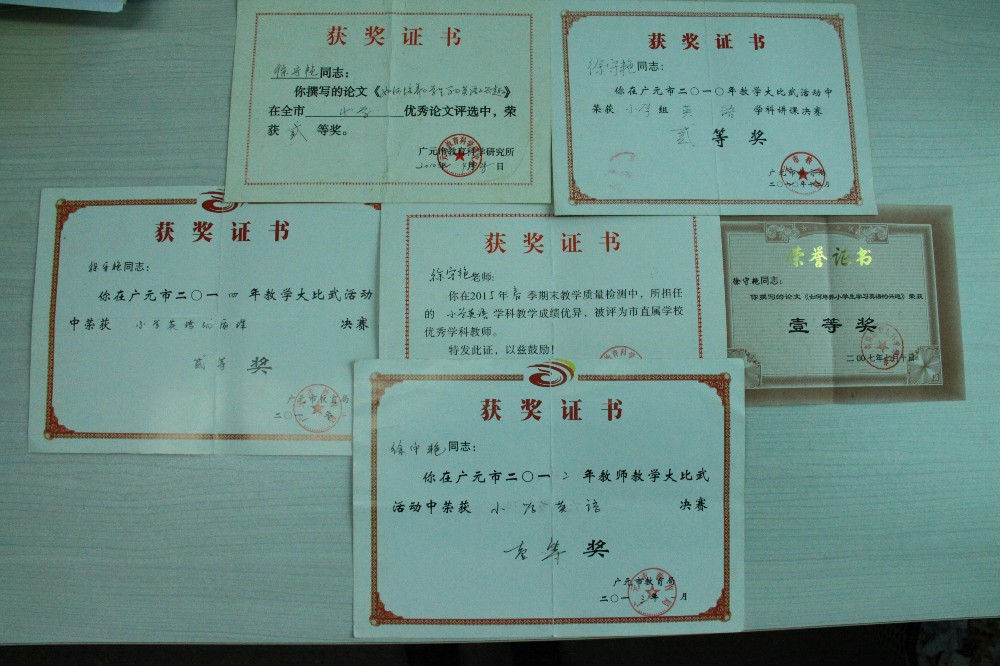 获奖证书
徐守艳同志：
你撰写的论文《如何培养小学生学习英语的兴趣》
在全市 小学 优秀论文评选中，荣
获 贰 等奖。
广元市教育科学研究所
获奖证书
徐守艳同志：
你在广元市二〇一〇年教学大比武活动中
荣获 小学组 英语 学科讲课决赛
贰等奖
广元市教育局
获奖证书
徐守艳同志：
你在广元市二〇一四年教学大比武活动
中荣获 小学英语 决赛
贰等奖
广元市教育局
获奖证书
徐守艳老师：
你在2015年春季期末教学质量检测中，所担任
的 小学英语 学科教学成绩优异，被评为市直属学校
优秀学科教师。
特发此证，以兹鼓励！
荣誉证书
徐守艳同志：
你撰写的论文《如何培养小学生学习英语的兴趣》荣获
壹等奖
二00七年七月十日
获奖证书
徐守艳同志：
你在广元市二〇一二年教师教学大比武
活动中荣获 小学英语 决赛
壹等奖
广元市教育局
二〇一三年一月